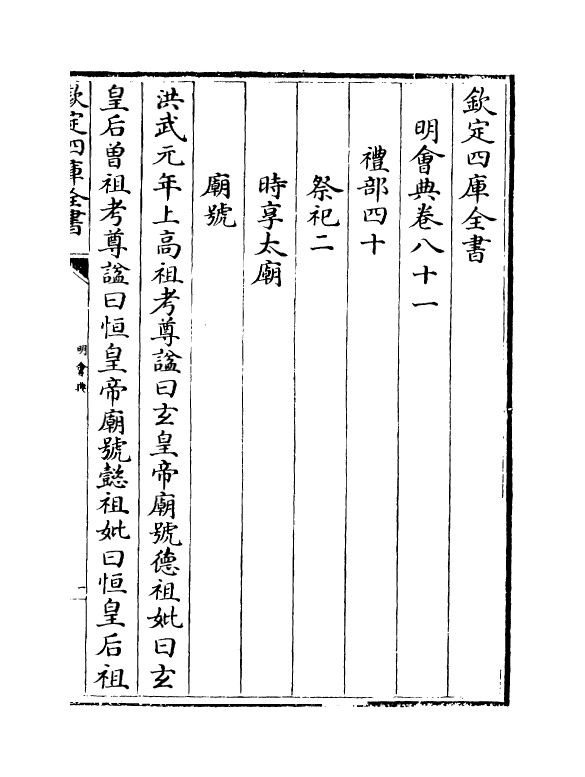 欽定四庫全書
明會典卷八十一
禮部四十
祭祀二
時享太廟
廟號
洪武元年上高祖考尊諡曰玄皇帝廟號德祖妣曰玄
皇后曽祖考尊諡曰恒皇帝廟號懿祖妣曰恒皇后祖
欽定四庫全書
明會典